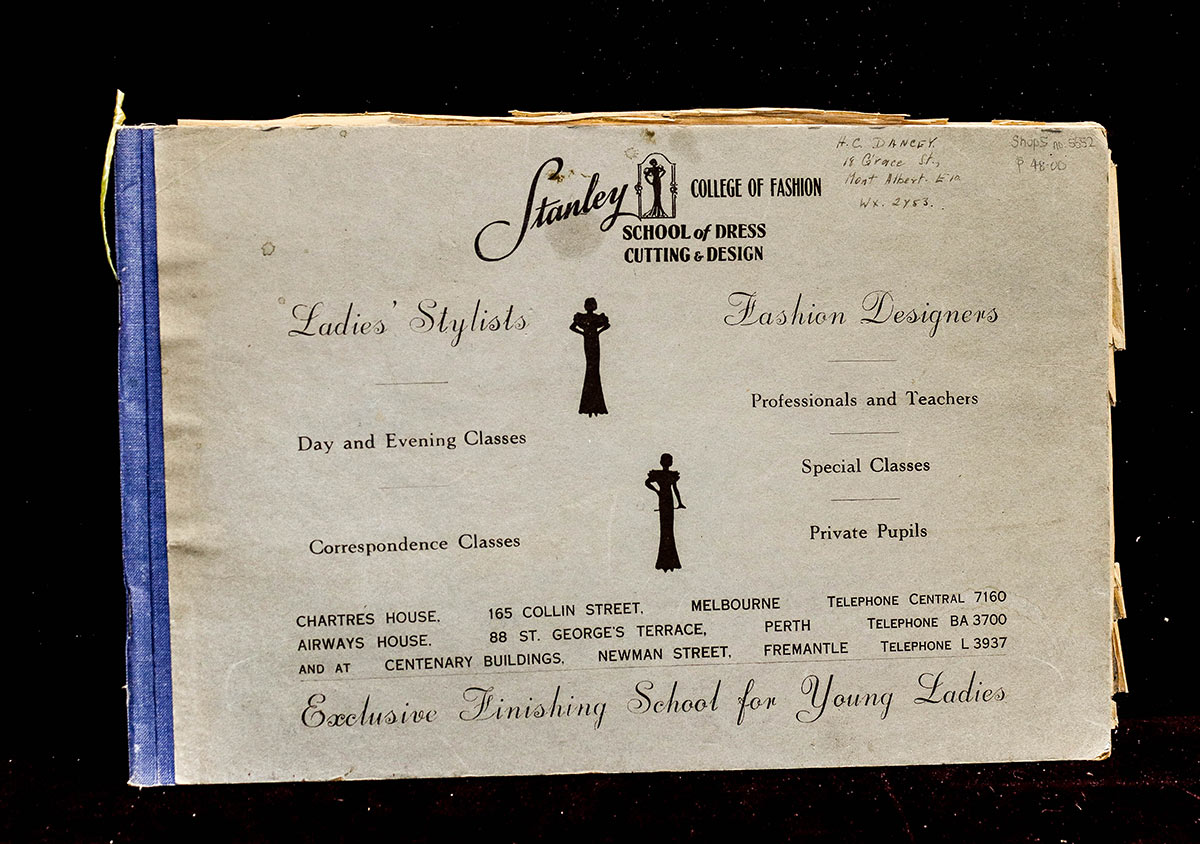 H.C. DANCEY.
18 Grace St.,
Mont Albert. E10
WX. 2453.
Shops no. 5552
P 48-00
Stanley COLLEGE OF FASHION
SCHOOL of DRESS
CUTTING & DESIGN
Ladies' Stylists
Day and Evening Classes
Correspondence Classes
Fashion Designers
Professionals and Teachers
Special Classes
Private Pupils
CHARTRES HOUSE, 165 COLLIN STREET, MELBOURNE TELEPHONE CENTRAL 7160
AIRWAYS HOUSE, 88 ST. GEORGE'S TERRACE, PERTH TELEPHONE BA 3700
AND AT CENTENARY BUILDINGS, NEWMAN STREET, FREMANTLE TELEPHONE L 3937
Exclusive Finishing School for Young Ladies